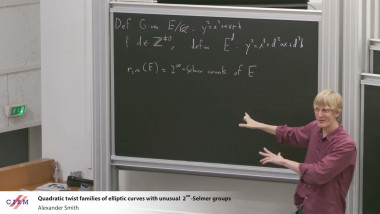 Def Given E/ℚ: y²=x³+ax+b
& d∈ℤ^{≠0}, define E^d: y²=x³+d²ax+d³b
r_{2^∞}(E) = 2^∞-Selmer corank of E
CIRM
Quadratic twist families of elliptic curves with unusual 2^∞-Selmer groups
Alexander Smith